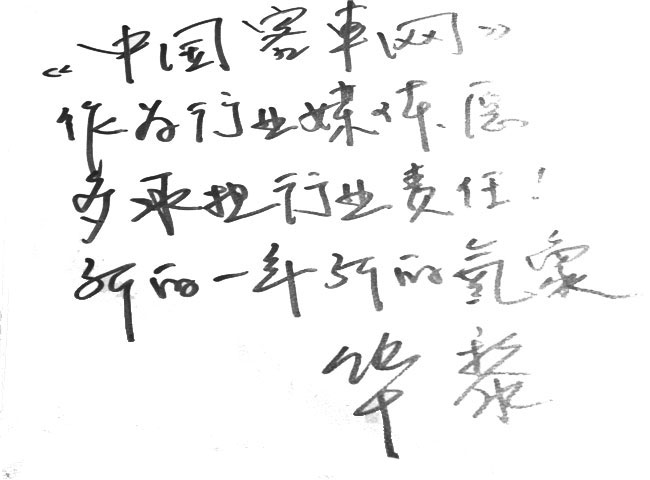 《中国客车网》
作为行业媒体、应
多承担行业责任！
新的一年新的氣象
华黎